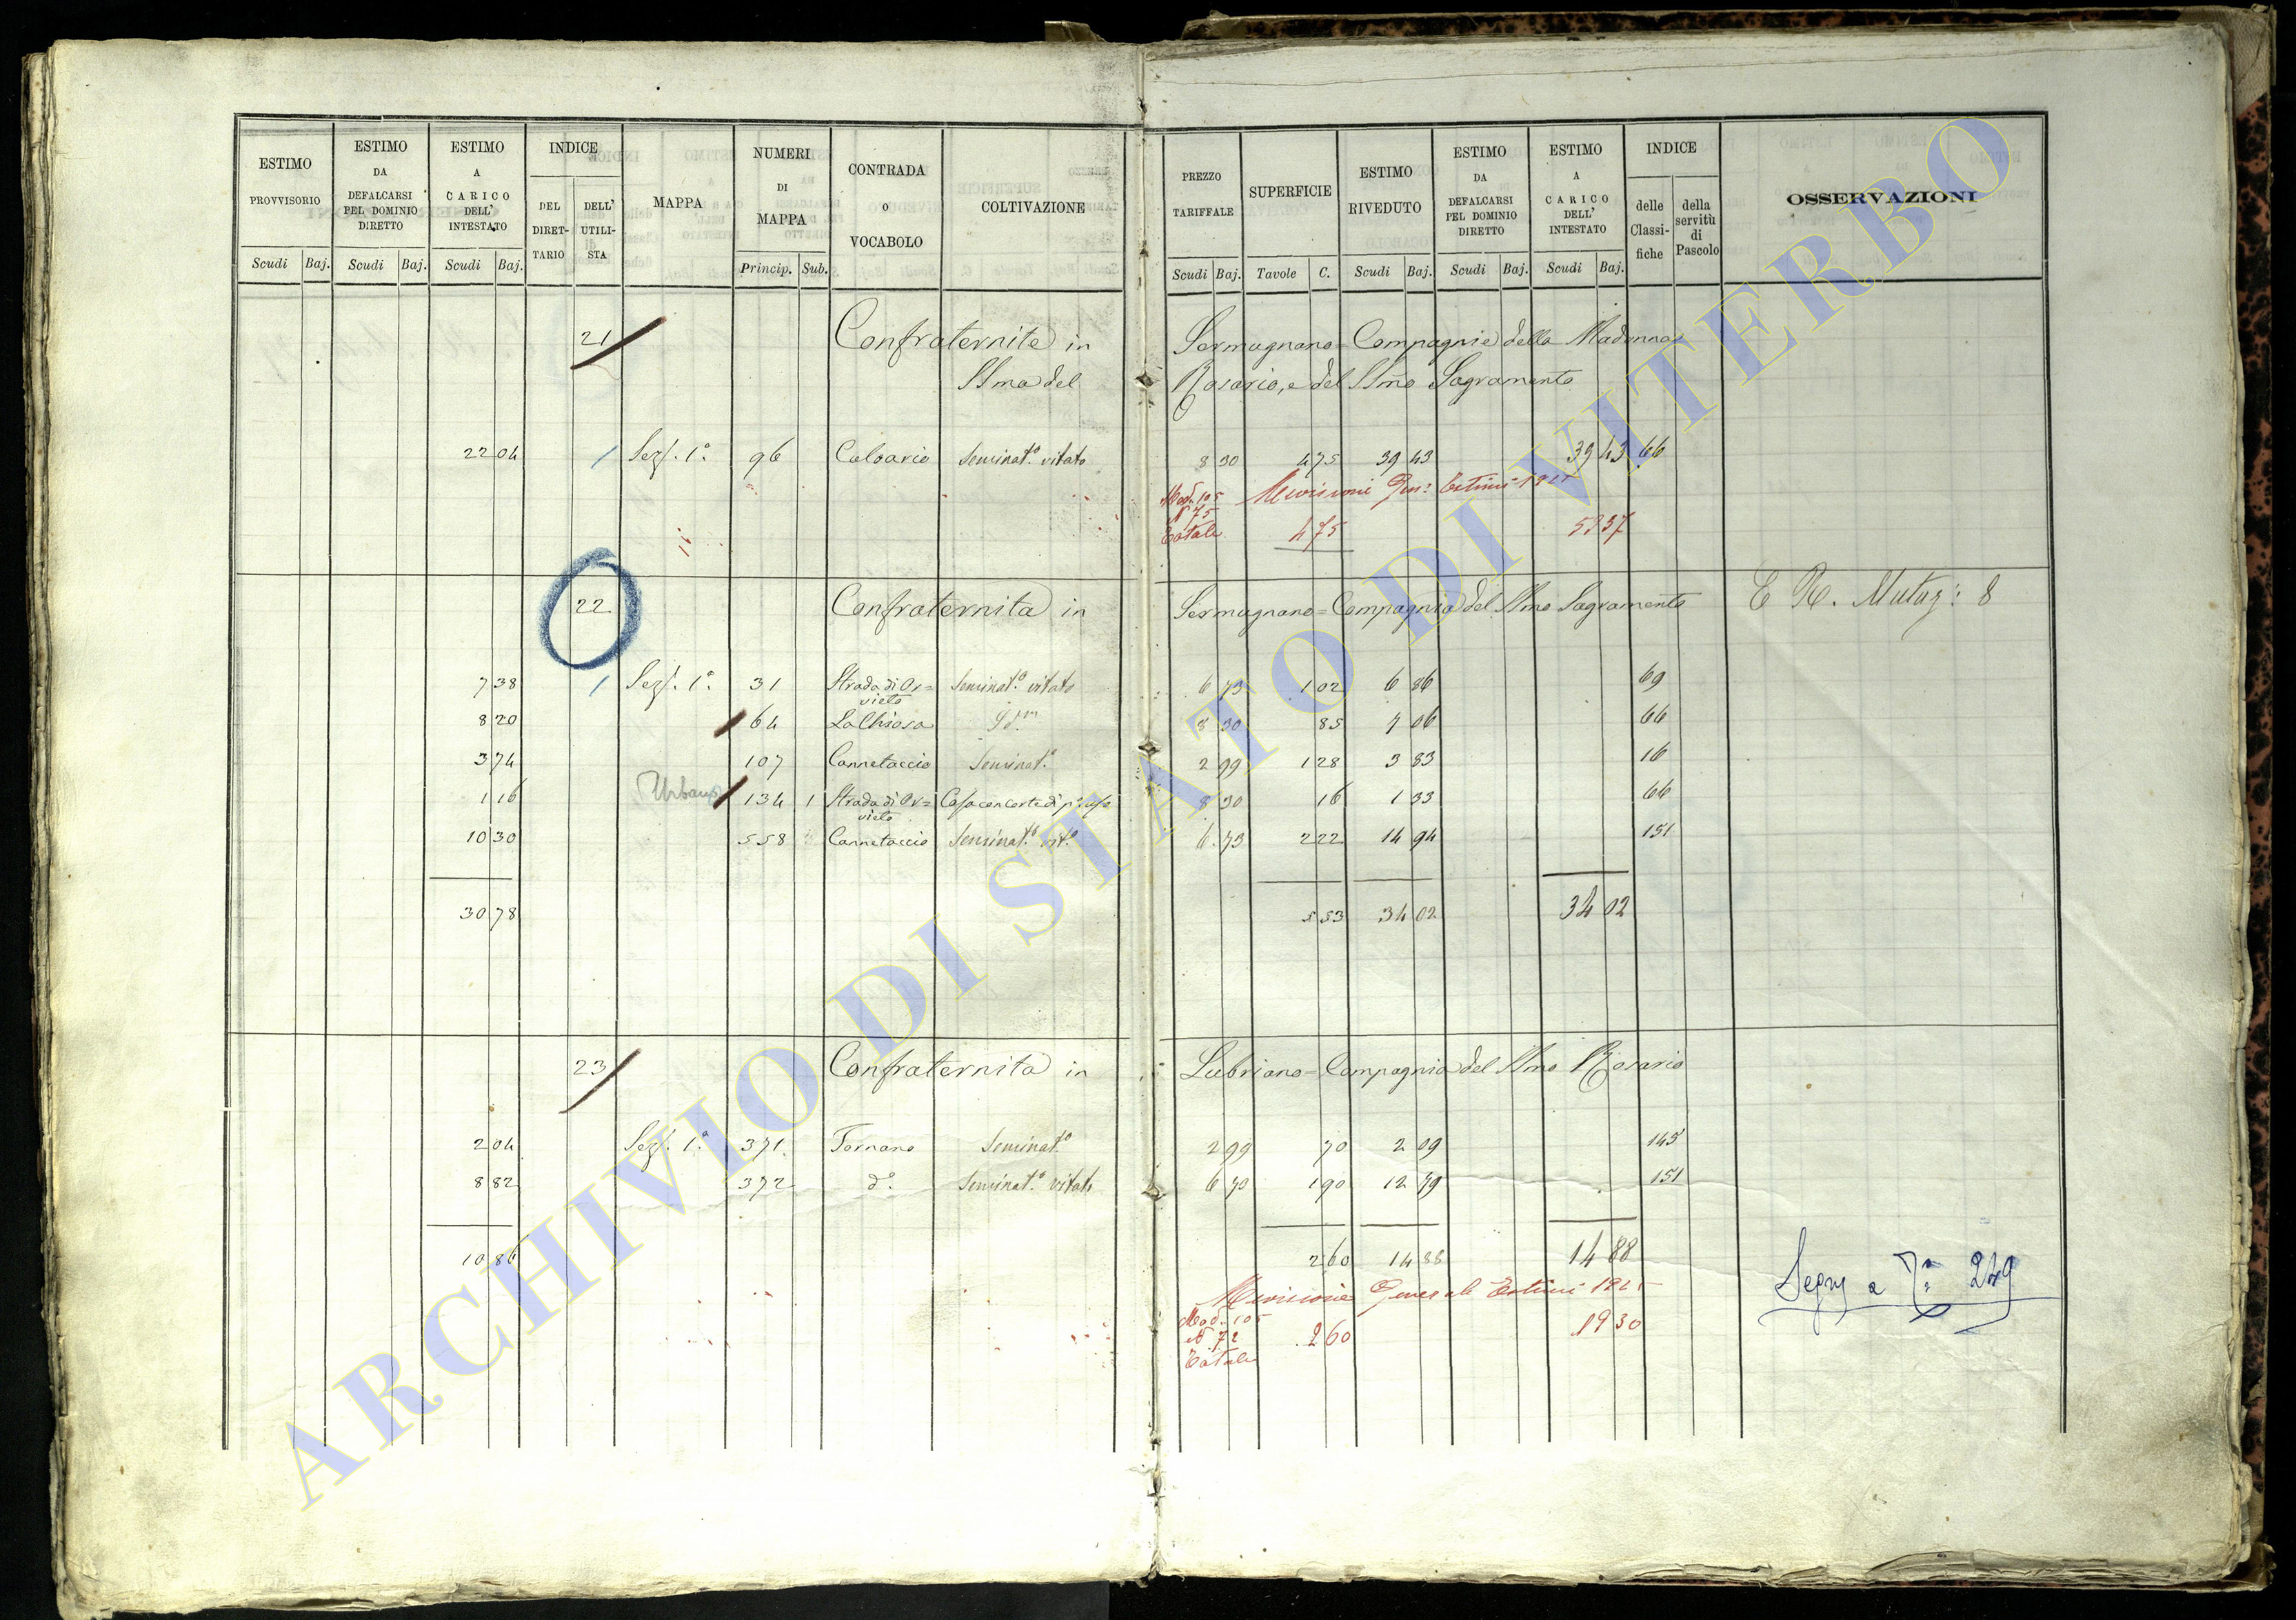 ESTIMO PROVVISORIO
Scudi Baj.
ESTIMO DA DEFALCARSI PEL DOMINIO DIRETTO
Scudi Baj.
ESTIMO A CARICO DELL' INTESTATO
Scudi Baj.
INDICE
DEL DIRET- TARIO
DELL' UTILI- STA
MAPPA
NUMERI DI MAPPA
Princip. Sub.
CONTRADA o VOCABOLO
COLTIVAZIONE
PREZZO TARIFFALE
Scudi Baj.
SUPERFICIE
Tavole C.
ESTIMO RIVEDUTO
Scudi Baj.
ESTIMO DA DEFALCARSI PEL DOMINIO DIRETTO
Scudi Baj.
ESTIMO A CARICO DELL' INTESTATO
Scudi Baj.
INDICE
delle Classi- fiche
della servitù di Pascolo
OSSERVAZIONI
21 Confraternite in Sermugnano = Compagnie della Madonna
SSma del Rosario, e del SSmo Sagramento
22 04 1 Sez. 1ª 96 Calvario Seminat.º vitato 8 30 475 39 43 39 43 66
Mod. 105 Revisioni Gen. Estimi
N 75
Totale 475 52 37
22 Confraternita in Sermugnano = Compagnia del SSmo Sagramento E R. Mutaz: 8
7 38 1 Sez. 1ª 31 Strada di Or= Seminat.º vitato 6 73 1 02 6 86 69
vieto
8 20 64 La Chiosa Idm 8 30 85 7 06 66
3 74 107 Cannetaccio Seminat.º 2 99 1 28 3 83 16
1 16 Urbano 134 1 Strada di Or= Casa con corte di pº uso 8 30 16 1 33 66
vieto
10 30 558 Cannetaccio Seminat.º vit.º 6 73 2 22 14 94 151
30 78 5 53 34 02 34 02
23 Confraternita in Lubriano = Compagnia del SSmo Rosario
2 04 Sez. 1ª 371 Fornano Seminat.º 2 99 70 2 09 145
8 82 372 dº Seminat.º vitato 6 70 1 90 12 79 151
10 86 2 60 14 88 14 88
Revisione Generale Estimi
Mod. 105
N 72 260 19 30
Totale
Segue a 249
ARCHIVIO DI STATO DI VITERBO